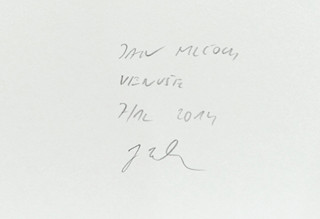 JAN MLČOCH
VENUŠE
7/12 2014